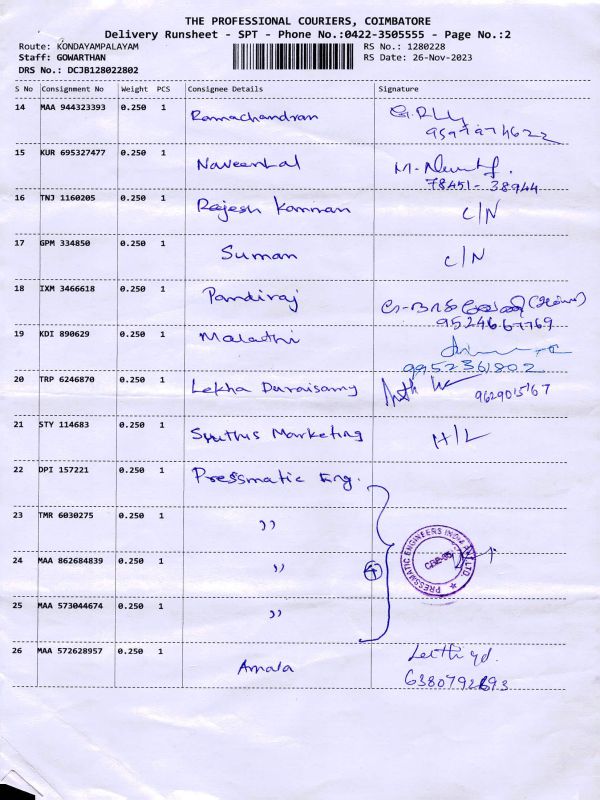 THE PROFESSIONAL COURIERS, COIMBATORE
Delivery Runsheet - SPT - Phone No.:0422-3505555 - Page No.:2
Route: KONDAYAMPALAYAM RS No.: 1280228
Staff: GOWARTHAN RS Date: 26-Nov-2023
DRS No.: DCJB128022802
S No Consignment No Weight PCS Consignee Details Signature
14 MAA 944323393 0.250 1 Ramachandran
15 KUR 695327477 0.250 1
78451-38944
16 TNJ 1160205 0.250 1 Rajesh Kannan C/N
17 GPM 334850 0.250 1 Suman C/N
18 IXM 3466618 0.250 1 Pandiraj
9524667769
19 KDI 890629 0.250 1 Malathi
9952361802
20 TRP 6246870 0.250 1 Lekha Duraisamy
21 STY 114683 0.250 1 Marketing H/L
22 DPI 157221 0.250 1 Pressmatic Eng.
23 TMR 6030275 0.250 1 ))
24 MAA 862684839 0.250 1 )) 4
PRESSMATIC ENGINEERS INDIA PVT LTD.
25 MAA 573044674 0.250 1 ))
26 MAA 572628957 0.250 1 Amala